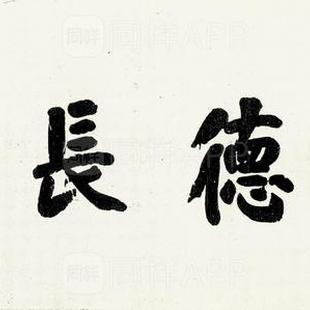 德長
同祥APP
同祥APP
同祥APP